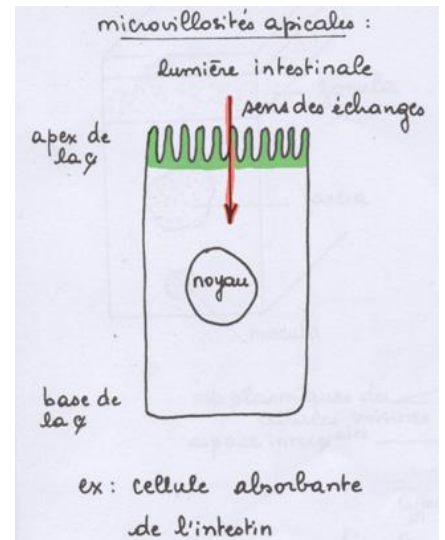 microvillosités apicales :
lumière intestinale
sens des échanges
apex de
la ç
noyau
base de
la ç
ex : cellule absorbante
de l'intestin